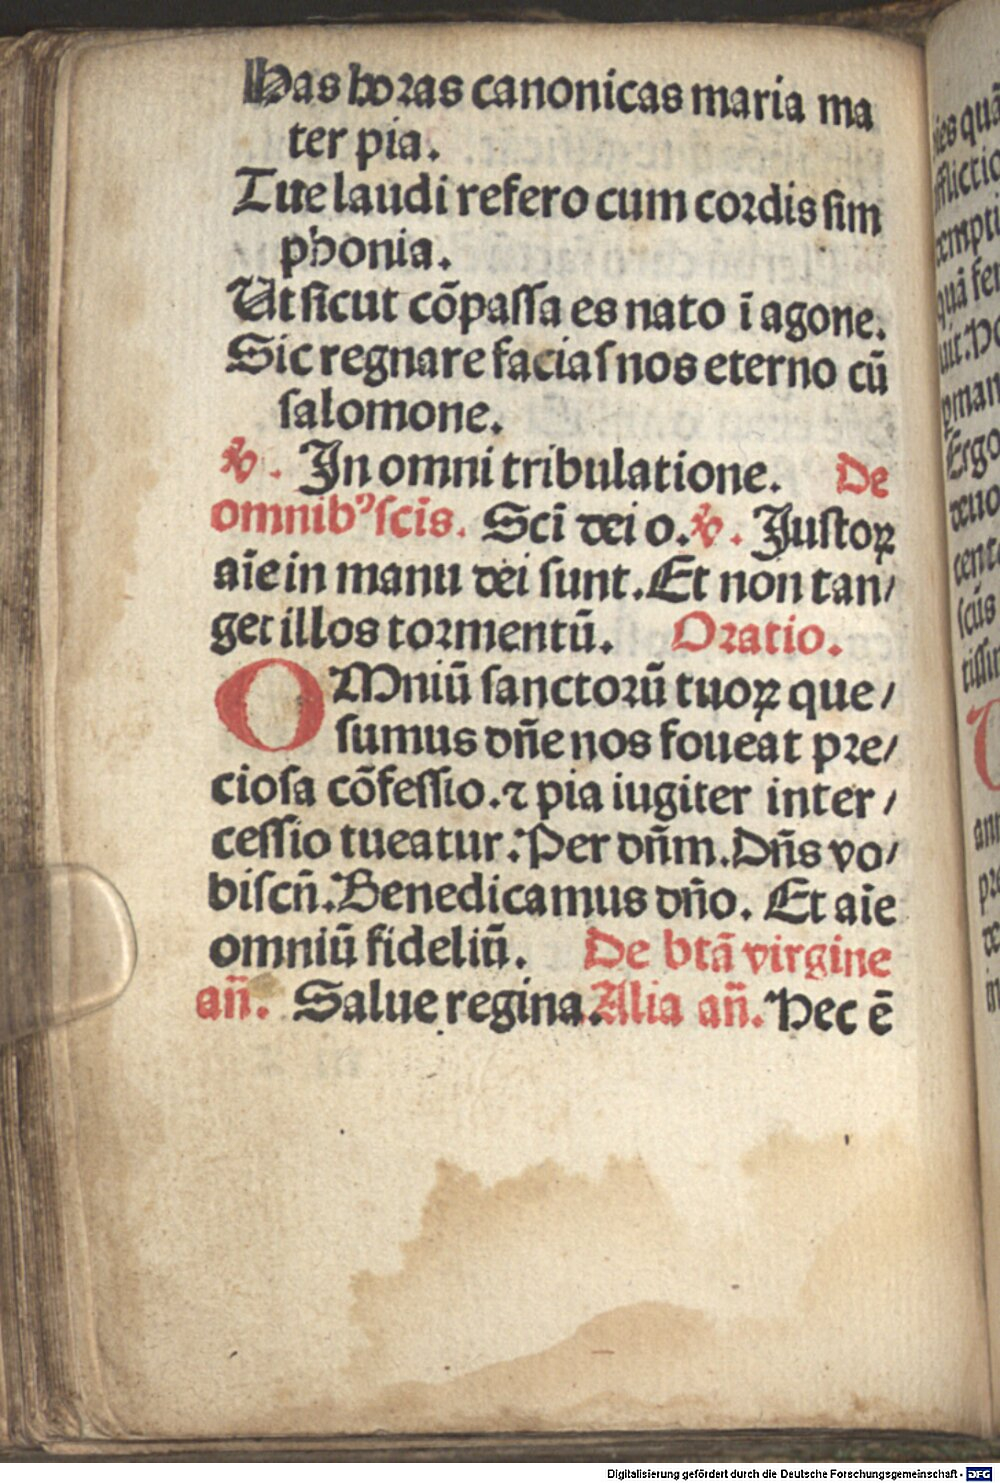 Has horas canonicas maria ma
ter pia.
Tue laudi refero cum cordis sim
phonia.
Ut sicut cōpassa es nato ī agone.
Sic regnare facias nos eterno cū
salomone.
℣. In omni tribulatione. De
omnibꝰ scīs. Scī dei o. ℣. Iustoꝝ
aīe in manu dei sunt. Et non tan/
get illos tormentū. Oratio.
OMniū sanctorū tuoꝝ que/
sumus dñe nos foueat pre/
ciosa cōfessio. ⁊ pia iugiter inter/
cessio tueatur. Per dñm. Dñs vo/
biscū. Benedicamus dño. Et aīe
omniū fideliū. De btā virgine
añ. Salue regina. Alia añ. Hec ē
Digitalisierung gefördert durch die Deutsche Forschungsgemeinschaft - DFG